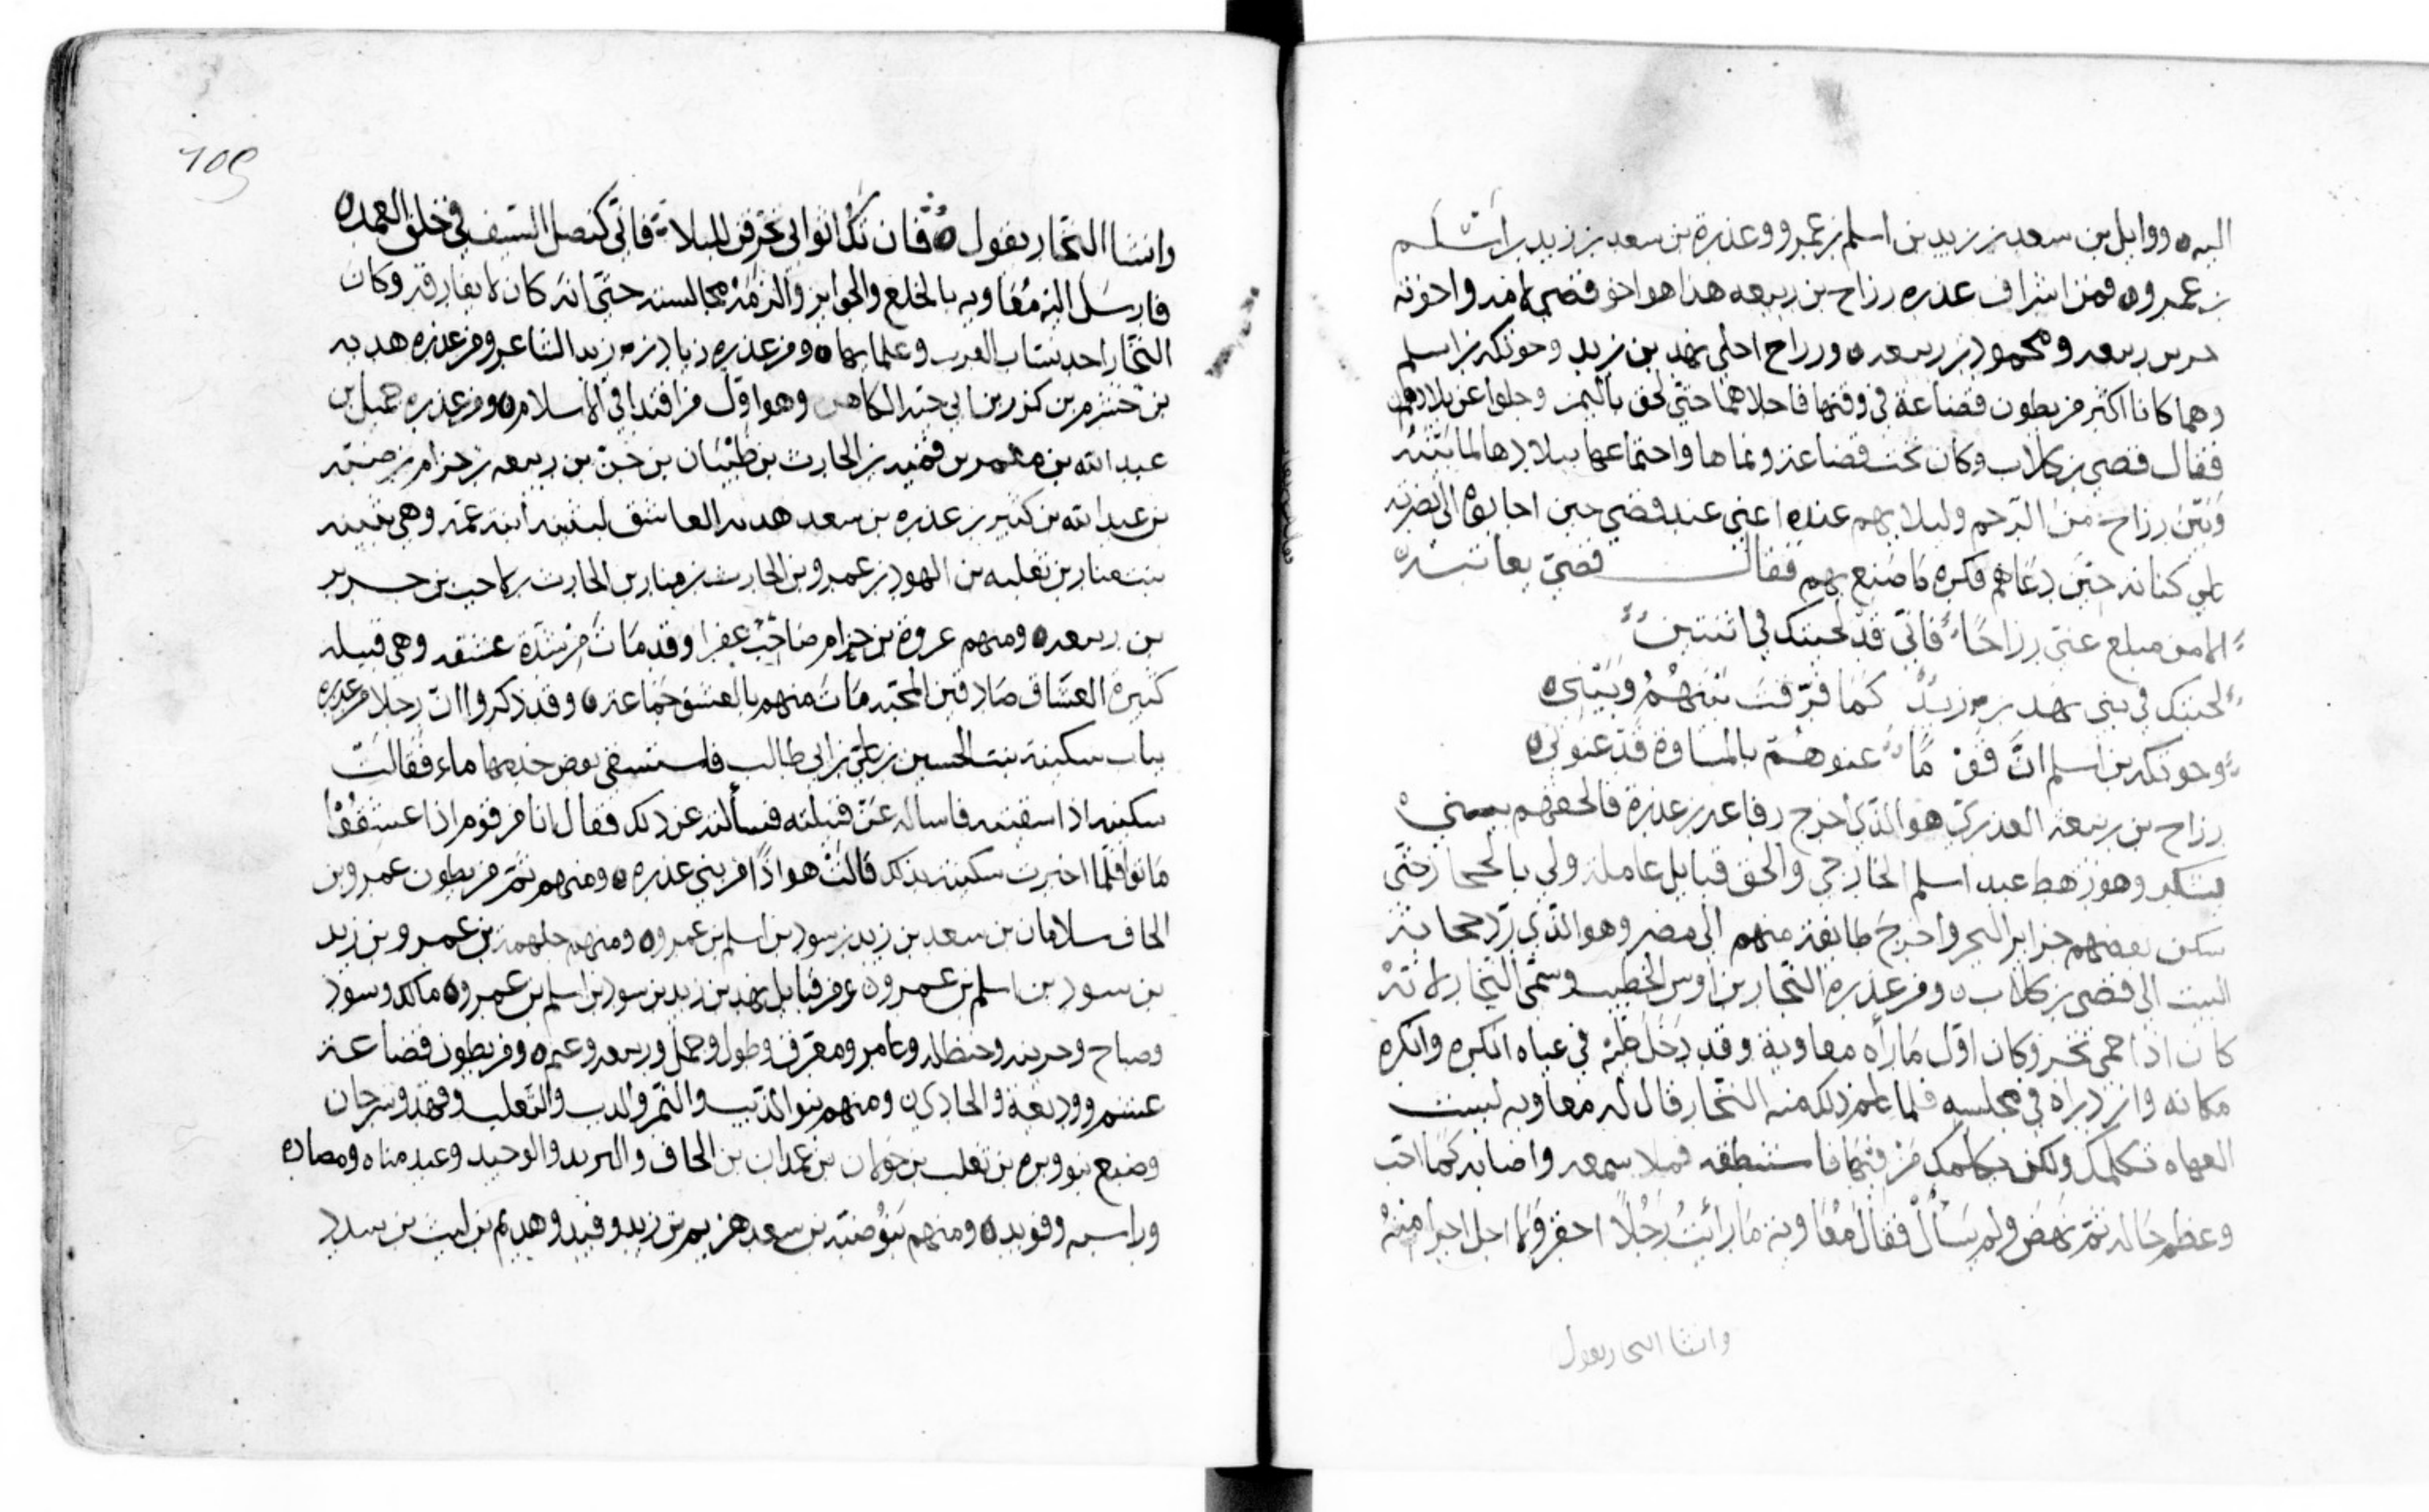 اليه ووايل بن سعد بن زيد بن اسلم بن عمرو وعذرة بن سعد بن زيد بن اسلم
بن عمرو فمن اشراف عذره رزاح بن ربيعه هذا هو اخو قصي لامه واخوته
حن بن ربيعه ومحمود بن ربيعه ورزاح اجلى نهد بن زيد وحوتكه بن اسلم
وهما كانا اكثر من بطون قضاعة في وقتها فاجلاهما حتى لحق باليمن وجلوا عن بلادهم
فقال قصي بن كلاب وكان يحب قضاعة ونماها واجتماعها ببلادها لما بينه
وبين رزاح من الرحم ولبلايهم عنده اعني عند قصي حين اجابوه الى نصرته
على كنانه حين دعاهم فكره ما صنع بهم فقال قصي يعاتبه
الا من مبلغ عني رزاحا فاني قد لحيتك في اثنتين
لحيتك في بني نهد بن زيد كما فرقت بينهم وبيني
وحوتكه بن اسلم ان قوما عنوهم بالمساوة قد عنوني
رزاح بن ربيعة العذري هو الذي اخرج رفاعه بن عذرة فالحقهم ببني
يشكر وهو رهط عبد اسلم الخارجي والحق قبايل عاملة ولي بالحجاز حتى
سكن بعضهم جزاير البحر واخرج طايفة منهم الى مصر وهو الذي رد حجابة
البيت الى قصي بن كلاب ومن عذره النخار بن اوس الخطيب وسمي النخار لانه
كان اذا حمي نخر وكان اول ما رآه معاوية وقد دخل عليه في عباه انكره وانكره
مكانه وازدراه في مجلسه فلما علم ذلك منه النخار قال له معاويه ليست
العباه تكلمك ولكن يكلمك من فيها فاستنطقه فملا سمعه واصابه كما احب
وعظم حاله ثم نهض ولم يسأل فقال معاوية ما رأيت رجلا احقر ولا اجل اخرا منه
وانشا النخار يقول
109
وانشا النخار يقول فان تك اثوابي تمزقن للبلا فاني كنصل السيف في خلق الغمد
فارسل اليه معاويه بالخلع والجوايز والزمه مجالسته حتى انه كان لا يفارقه وكان
النخار احد نساب العرب وعلمايها ومن عذره زياده بن زيد الشاعر ومن عذره هدبه
بن خشرم بن كرز بن ابي حيه الكاهن وهو اول من اقتدا في الاسلام ومن عذره جميل بن
عبد الله بن معمر بن قميه بن الحارث بن ظبيان بن حن بن ربيعه بن حزام بن ضنه
بن عبد الله بن كثير بن عذره بن سعد هديم العاشق لبثينه ابنة عمه وهي بثينه
بنت بن ثعلبه بن الهوذ بن عمرو بن الحارث بن بن الحارث بن لاحب بن
بن ربيعه ومنهم عروة بن حزام صاحب عفرا وقد مات من شدة عشقه وهي قبيله
كثيره العشاق صادقين المحبه مات منهم بالعشق جماعة وقد ذكروا ان رجلا من عذره
بباب سكينة بنت الحسين بن علي بن ابي طالب فاستسقى بعض خدمها ماء فقالت
سكينه اذا سقيته فاساله عن قبيلته فسألته عن ذلك فقال انا من قوم اذا عشقوا
ماتوا فلما اخبرت سكينة بذلك قالت هو اذا من بني عذره ومنهم ثم من بطون عمرو بن
الحاف سلامان بن سعد بن زيد بن سود بن اسلم بن عمرو ومنهم جلهمة بن عمرو بن زيد
بن سود بن اسلم بن عمرو ومن قبايل نهد بن زيد بن سود بن اسلم بن عمرو مالك وسود
وصباح وحزيمه وحنظله وعامر ومعرف وطول وحمل وربيعه وعبره ومن بطون قضاعة
عشم ووديعة والحادي ومنهم بنو الذيب والنمر والدب والثعلب وفهد وسرحان
وضبع بنو وبره بن تغلب بن حلوان بن عمران بن الحاف والبريد والوحيد وعبد مناه ومصاده
وراسب وفويد ومنهم بنو ضنه بن سعد هزيم بن زيد وهديم بن ليث بن سود